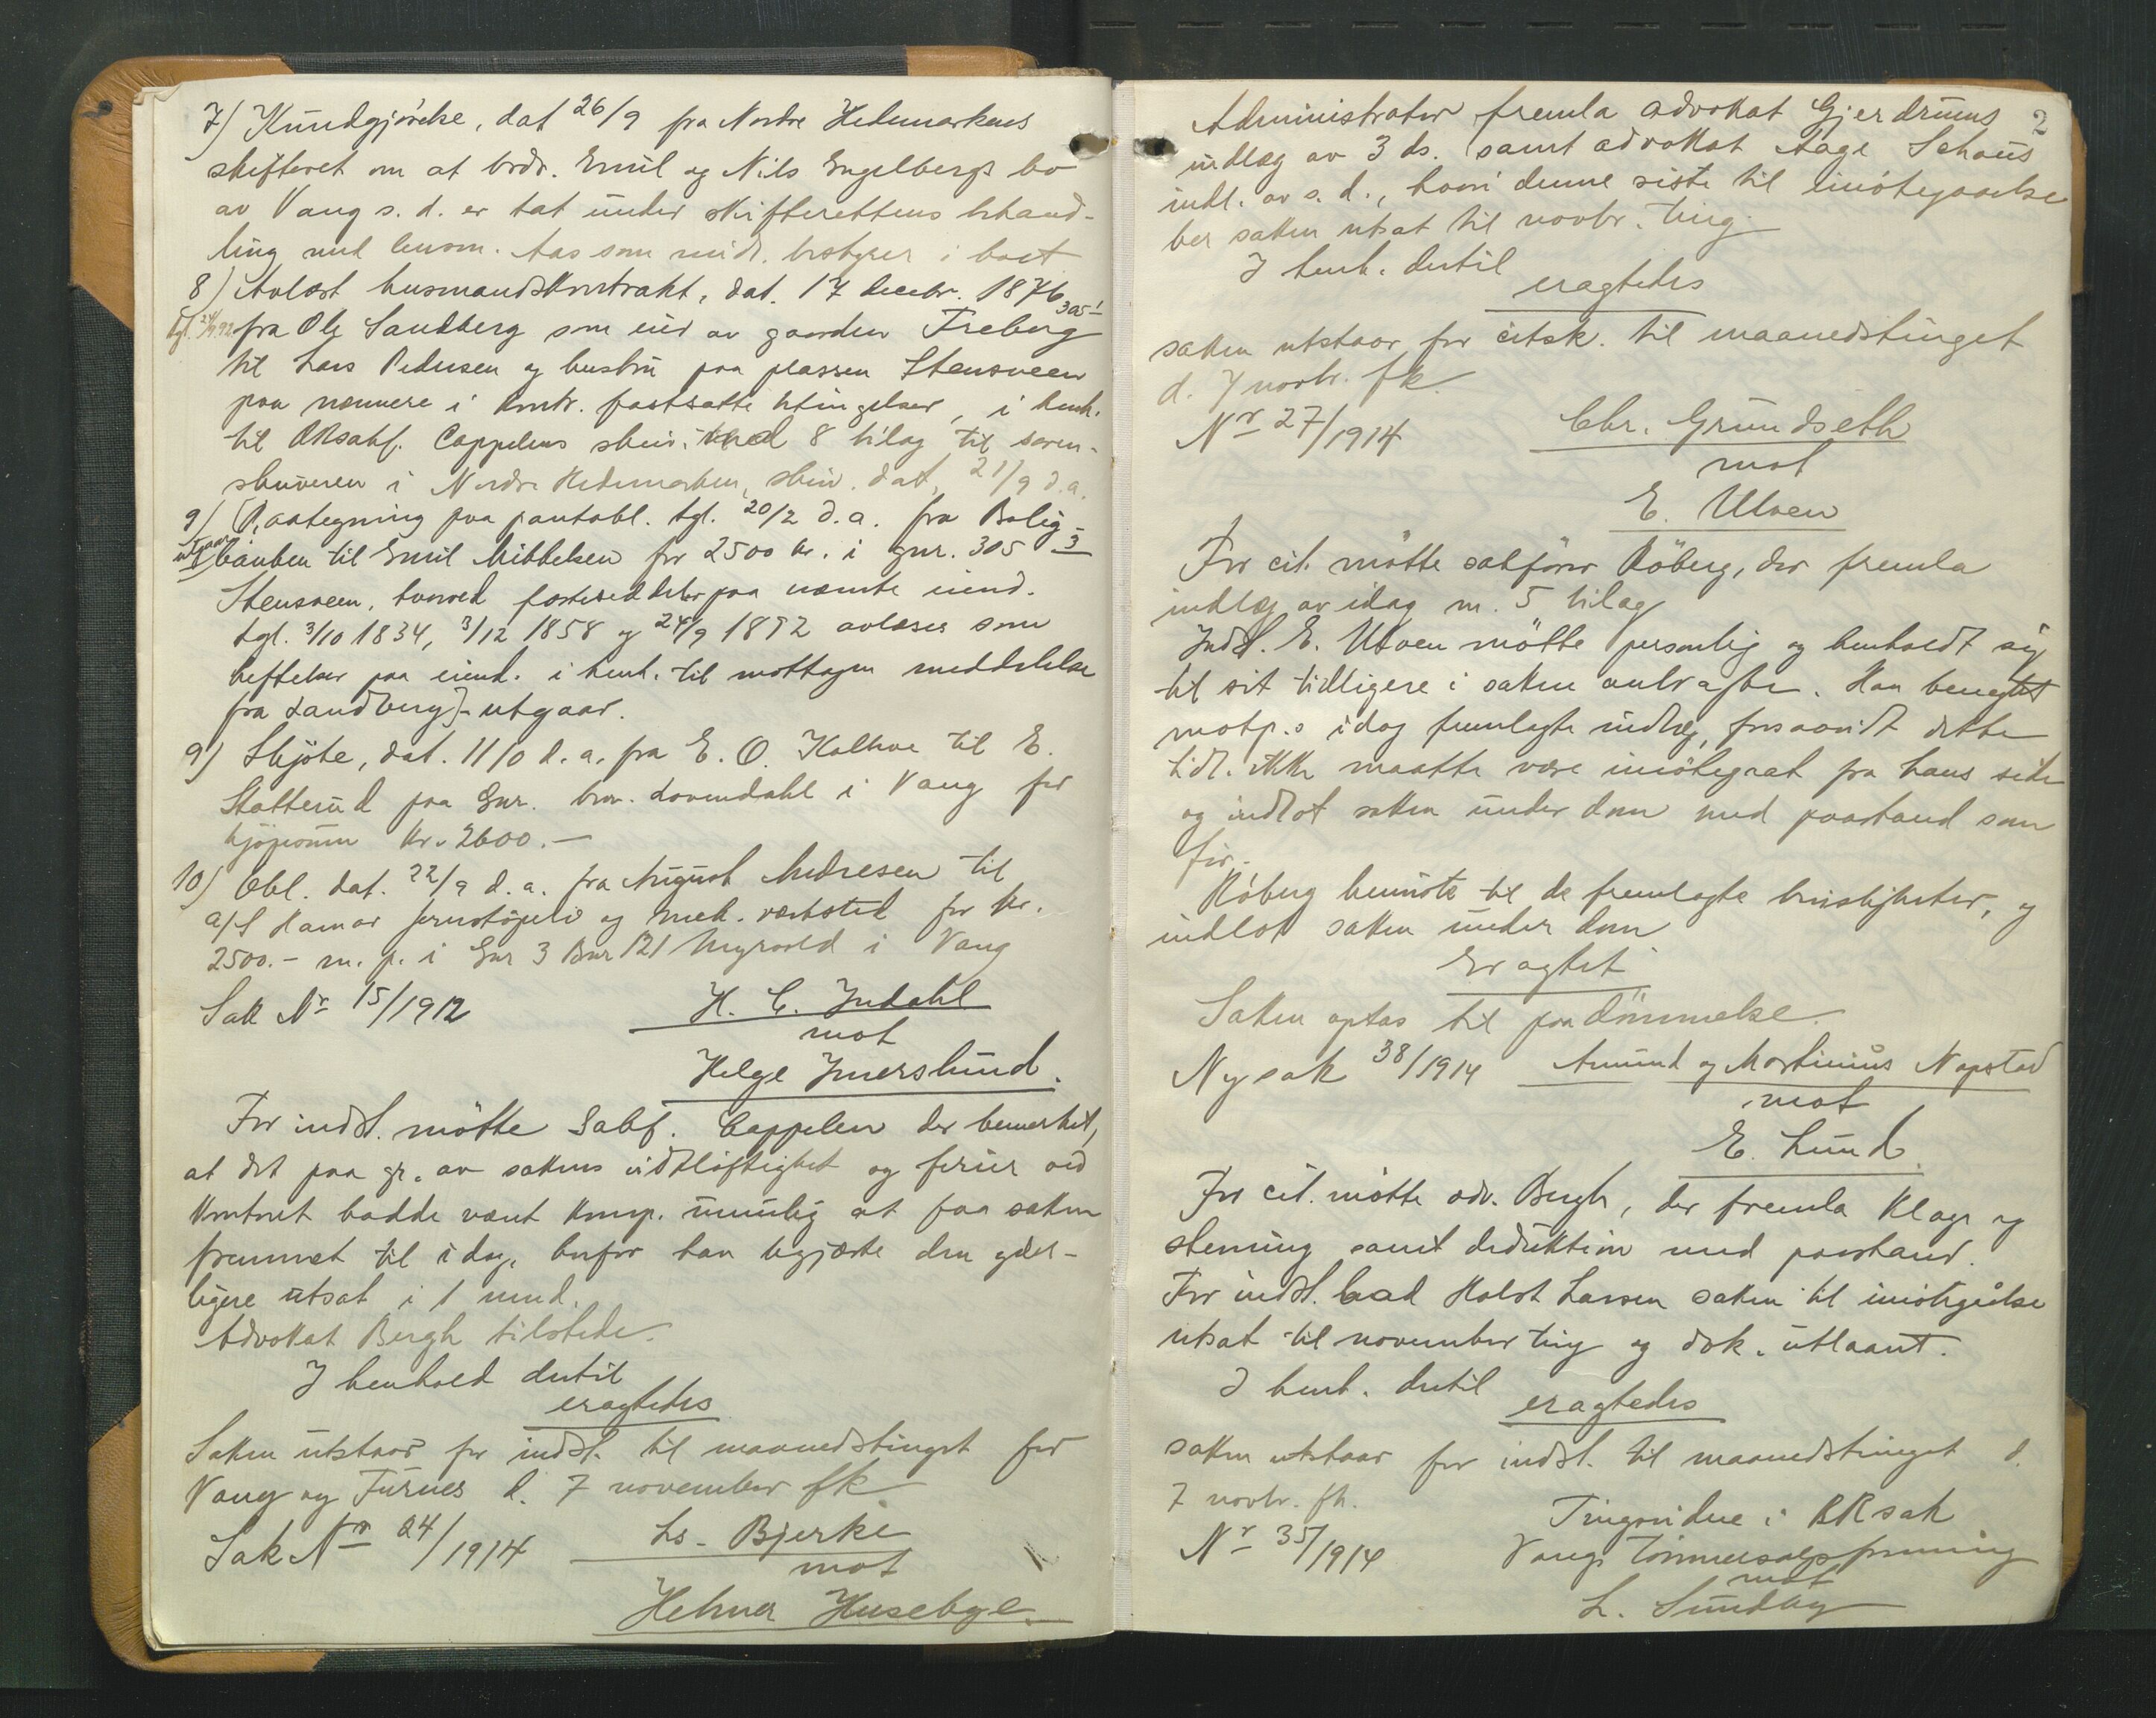 7) Kundgjörelse, dat 26/9 fra Nordre Hedemarkens
skifteret om at brdr. Emil og Nils Engelbergs bo
av Vang s. d. er tat under skifterettens behand-
ling med lensm. Aas som midl. bestyrer i boet
8) Avlæst husmandskontrakt, dat. 17 decbr. 1876
305 1
tgl. 24/9 92 fra Ole Sandberg som eier av gaarden Freberg
til Lars Pedersen og hustru paa plassen Stensveen
paa nærmere i kontr. fastsatte betingelser, i henh.
til ORsakf. Cappelens skriv. med 8 bilag til soren-
skriveren i Nordre Hedemarken, skriv. dat. 21/9 d.a.
9) (Paategning paa pantobl. tgl. 20/2 d.a. fra Bolig-
utgaar banken til Emil Mikkelsen for 2500 kr. i gnr. 305 3
Stensveen, hvorved fæstesedler paa nævnte eiend.
tgl. 3/10 1834, 3/12 1858 og 24/9 1892 avlæses som
heftelser paa eiend. i henh. til mottagen meddelelse
fra Sandberg) - utgaar.
9) Skjöte, dat. 11/0 d.a. fra E. O. Kolkve til E.
Statterud paa Gnr. bnr. Lovendahl i Vang for
kjöpesum kr. 2600.-
10) Obl. dat. 22/9 d.a. fra August Andresen til
a/S Hamar jernstöperi og mek. verksted for kr.
2500.- m. p. i Gnr 3 Bnr 121 Myrvold i Vang
Sak Nr 15/1912 H. C. Indahl
mot
Helge Imerslund.
For indst. mötte Sakf. Cappelen der bemerket,
at det paa gr. av sakens vidtlöftighet og ferier ved
kontoret hadde vært komp. umulig at faa saken
fremmet til idag, hvorfor han begjærte den yder-
ligere utsat i 1 mnd.
Advokat Bergh tilstede.
I henhold dertil
eragtedes
Saken utstaar for indst. til maanedstinget for
Vang og Furnes d. 7 november fk
Sak Nr 24/1914 Ls. Bjerke
mot
Helmer Husebye
2
Administrator fremla advokat Gjerdrums
indlæg av 3 ds. samt advokat Aage Schous
indl. av s. d., hvori denne siste til imötegaaelse
ber saken utsat til novbr. ting.
I henh. dertil
eragtedes
saken utstaar for citsk. til maanedstinget
d. 7 novbr. fk
Nr 27/1914 Chr. Grundseth
mot
E. Ulven
For cit. mötte sakförer Röberg, der fremla
indlæg av idag m. 5 bilag
Indst. E. Ulven mötte personlig og henholdt sig
til sit tidligere i saken anbragte. Han benegtet
motp.s idag fremlagte indlæg, forsaavidt dette
tidl. ikke maatte være imötegaat fra hans side
og indlot saken under dom med paastand som
för.
Röberg henviste til de fremlagte beviskjheter, og
indlot saken under dom
Eragtet
Saken optas til paadömmelse.
Ny sak 38/1914 Amund og Martinius Napstad
mot
E. Lund.
For cit. mötte adv. Bergh, der fremla klage og
stevning samt deduktion med paastand.
For indst. bad Holst Larsen saken til imötegåelse
utsat til november ting og dok. utlaant.
I henh. dertil
eragtedes
saken utstaar for indst. til maanedstinget d.
7 novbr. fk.
Nr 35/1914 Tingsvidne i ORsak
Vangs tömmersalgsforening
mot
L. Sundby